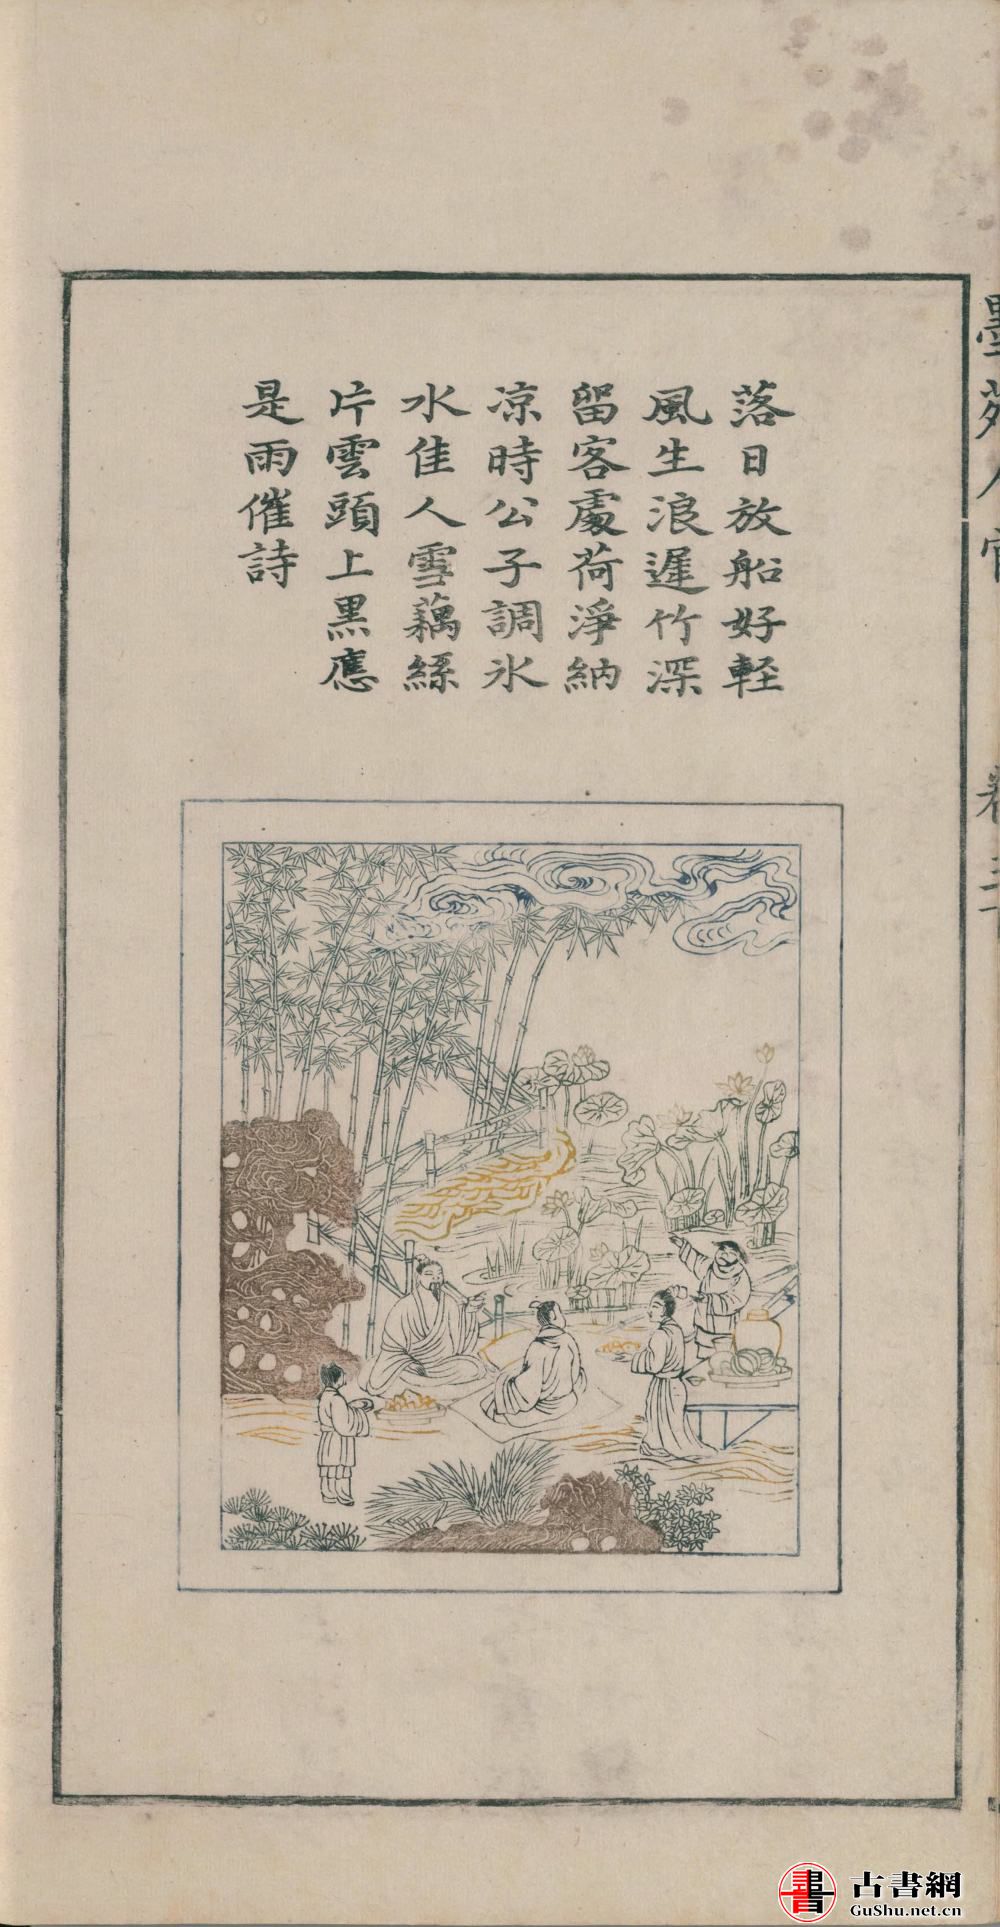 落日放船好軽
風生浪遲竹深
留客處荷淨納
凉時公子調氷
水佳人雪藕絲
片雲頭上黒應
是雨催詩
書
古書網
GuShu.net.cn